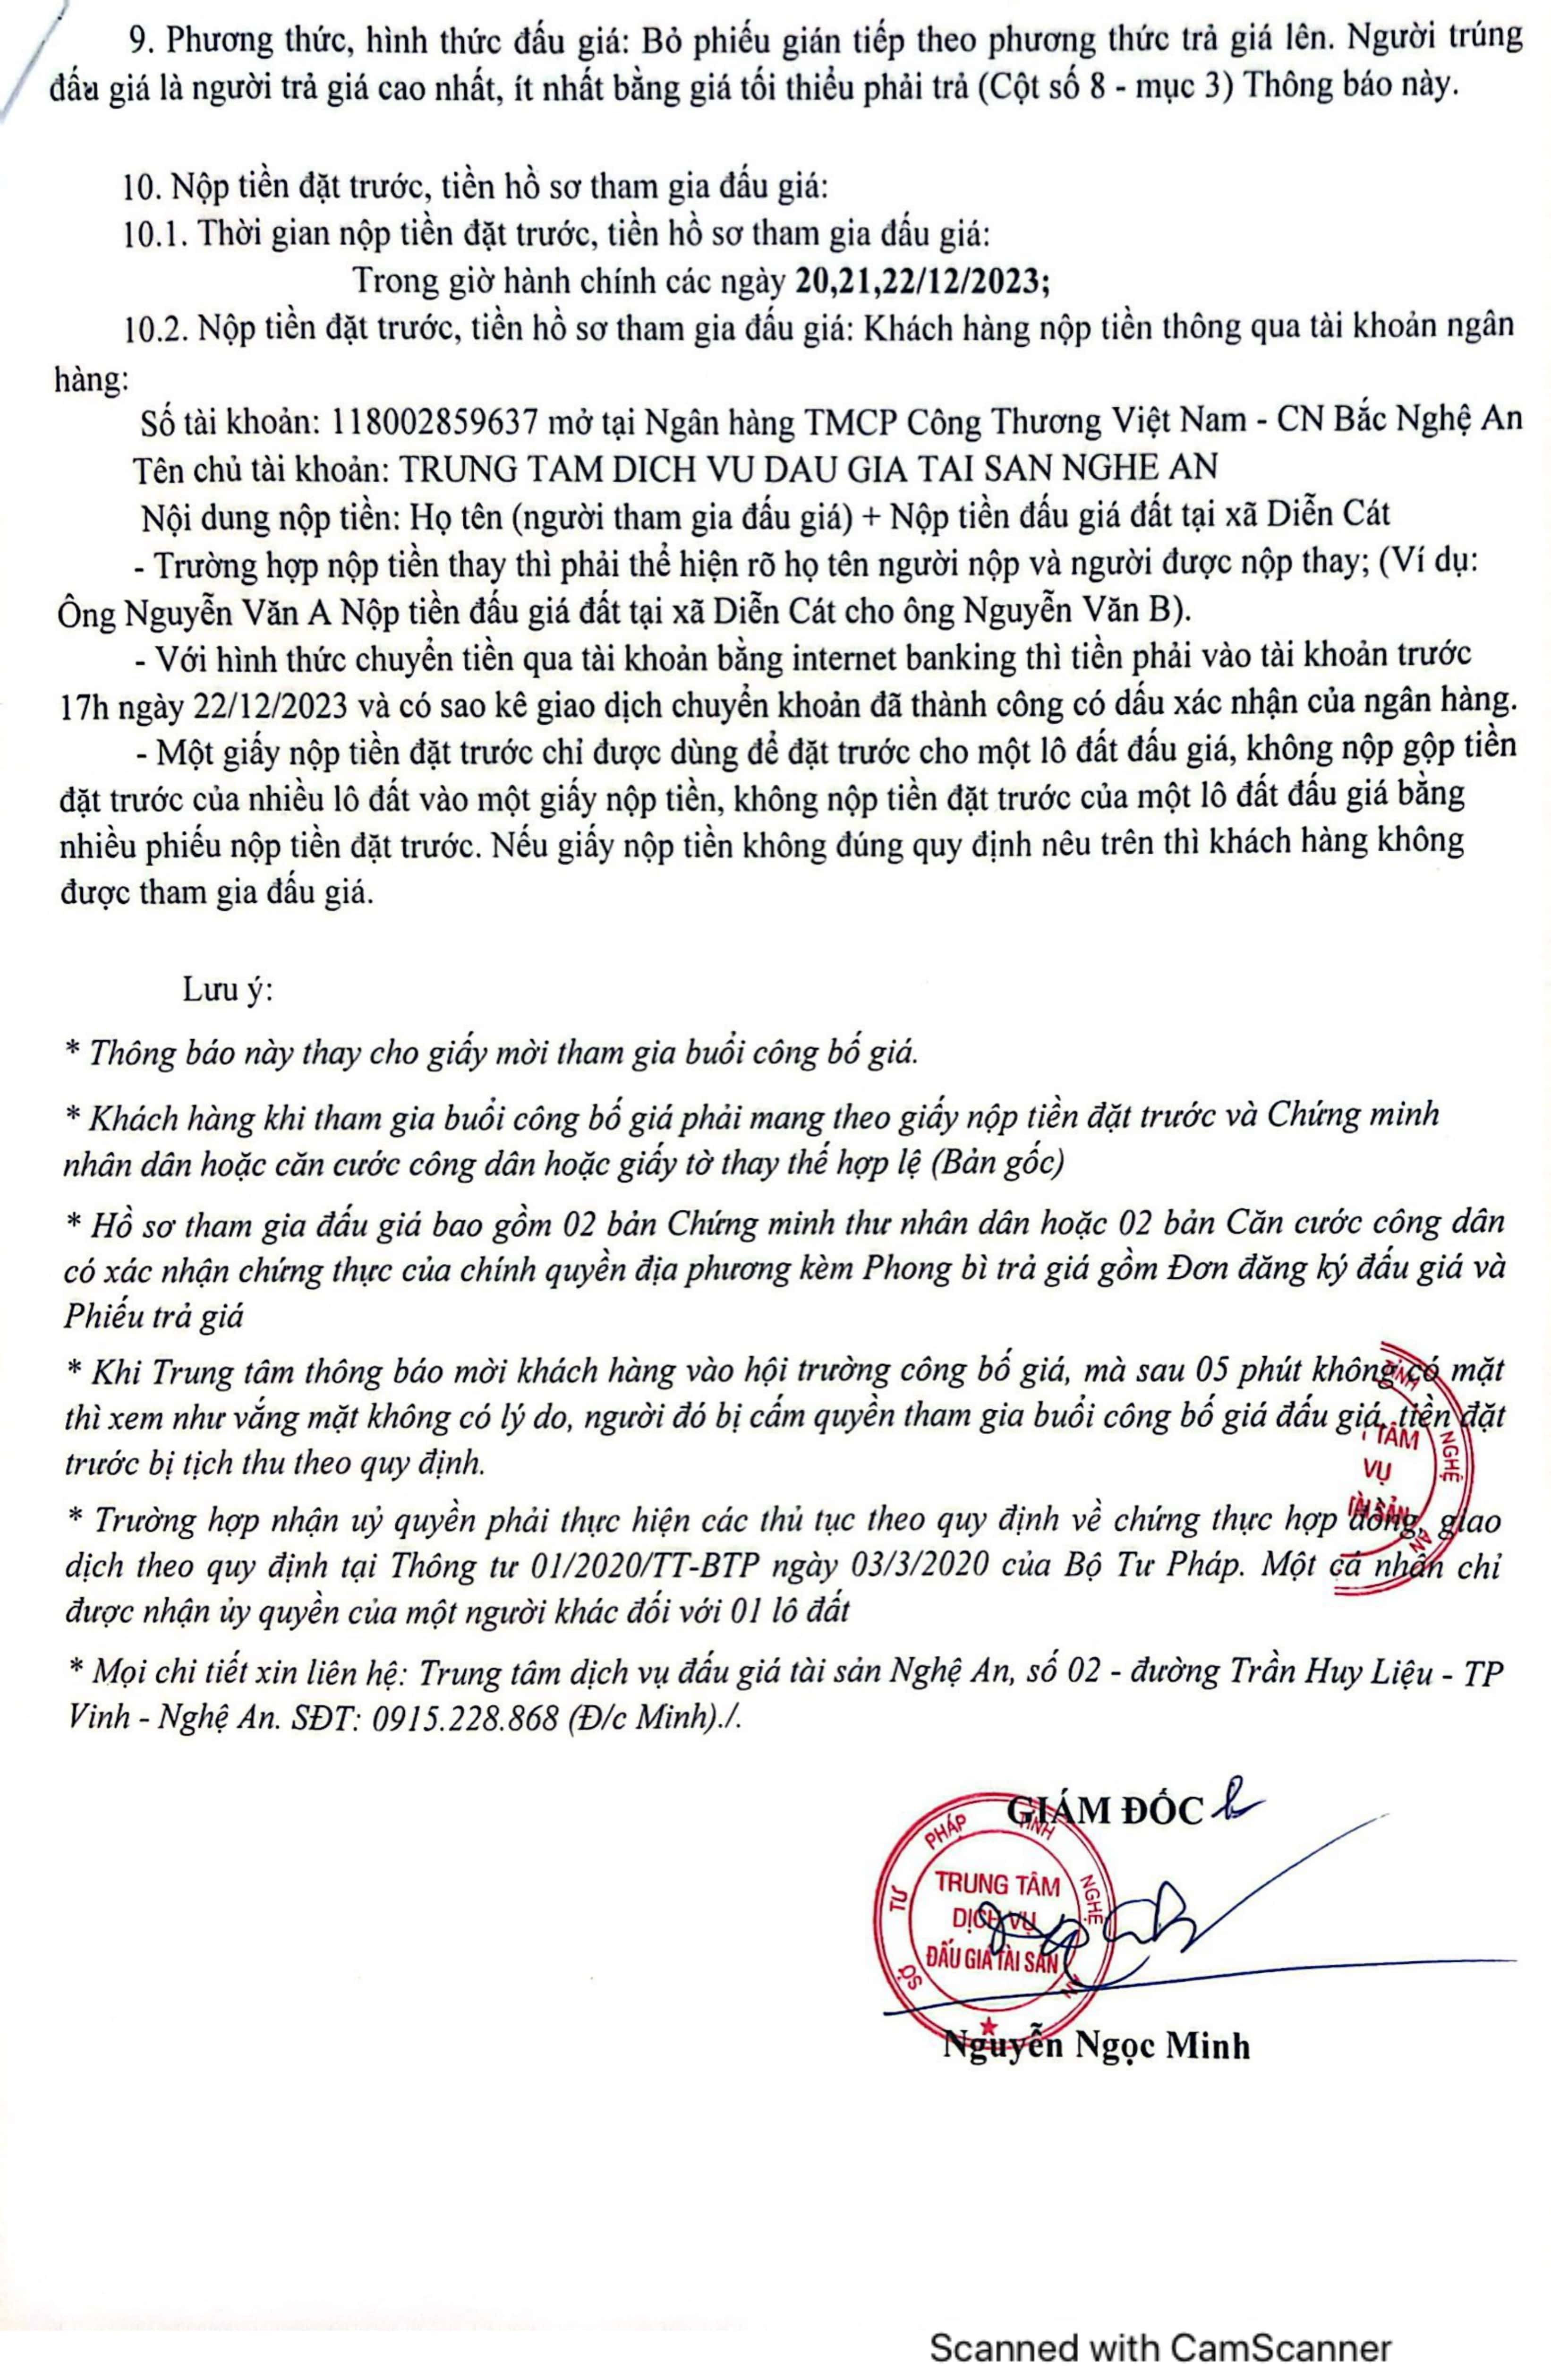 9. Phương thức, hình thức đấu giá: Bỏ phiếu gián tiếp theo phương thức trả giá lên. Người trúng
đấu giá là người trả giá cao nhất, ít nhất bằng giá tối thiểu phải trả (Cột số 8 - mục 3) Thông báo này.
10. Nộp tiền đặt trước, tiền hồ sơ tham gia đấu giá:
10.1. Thời gian nộp tiền đặt trước, tiền hồ sơ tham gia đấu giá:
Trong giờ hành chính các ngày 20,21,22/12/2023;
10.2. Nộp tiền đặt trước, tiền hồ sơ tham gia đấu giá: Khách hàng nộp tiền thông qua tài khoản ngân
hàng:
Số tài khoản: 118002859637 mở tại Ngân hàng TMCP Công Thương Việt Nam - CN Bắc Nghệ An
Tên chủ tài khoản: TRUNG TAM DICH VU DAU GIA TAI SAN NGHE AN
Nội dung nộp tiền: Họ tên (người tham gia đấu giá) + Nộp tiền đấu giá đất tại xã Diễn Cát
- Trường hợp nộp tiền thay thì phải thể hiện rõ họ tên người nộp và người được nộp thay; (Ví dụ:
Ông Nguyễn Văn A Nộp tiền đấu giá đất tại xã Diễn Cát cho ông Nguyễn Văn B).
- Với hình thức chuyển tiền qua tài khoản bằng internet banking thì tiền phải vào tài khoản trước
17h ngày 22/12/2023 và có sao kê giao dịch chuyển khoản đã thành công có dấu xác nhận của ngân hàng.
- Một giấy nộp tiền đặt trước chỉ được dùng để đặt trước cho một lô đất đấu giá, không nộp gộp tiền
đặt trước của nhiều lô đất vào một giấy nộp tiền, không nộp tiền đặt trước của một lô đất đấu giá bằng
nhiều phiếu nộp tiền đặt trước. Nếu giấy nộp tiền không đúng quy định nêu trên thì khách hàng không
được tham gia đấu giá.
Lưu ý:
* Thông báo này thay cho giấy mời tham gia buổi công bố giá.
* Khách hàng khi tham gia buổi công bố giá phải mang theo giấy nộp tiền đặt trước và Chứng minh
nhân dân hoặc căn cước công dân hoặc giấy tờ thay thế hợp lệ (Bản gốc)
* Hồ sơ tham gia đấu giá bao gồm 02 bản Chứng minh thư nhân dân hoặc 02 bản Căn cước công dân
có xác nhận chứng thực của chính quyền địa phương kèm Phong bì trả giá gồm Đơn đăng ký đấu giá và
Phiếu trả giá
* Khi Trung tâm thông báo mời khách hàng vào hội trường công bố giá, mà sau 05 phút không có mặt
thì xem như vắng mặt không có lý do, người đó bị cấm quyền tham gia buổi công bố giá đấu giá, tiền đặt
trước bị tịch thu theo quy định.
TỈNH NGHỆ AN
TÂM
VỤ
TÀI SẢN
* Trường hợp nhận uỷ quyền phải thực hiện các thủ tục theo quy định về chứng thực hợp đồng, giao
dịch theo quy định tại Thông tư 01/2020/TT-BTP ngày 03/3/2020 của Bộ Tư Pháp. Một cá nhân chỉ
được nhận ủy quyền của một người khác đối với 01 lô đất
* Mọi chi tiết xin liên hệ: Trung tâm dịch vụ đấu giá tài sản Nghệ An, số 02 - đường Trần Huy Liệu - TP
Vinh - Nghệ An. SĐT: 0915.228.868 (Đ/c Minh)./.
GIÁM ĐỐC
SỞ TƯ PHÁP TỈNH NGHỆ AN
TRUNG TÂM
DỊCH VỤ
ĐẤU GIÁ TÀI SẢN
Nguyễn Ngọc Minh
Scanned with CamScanner